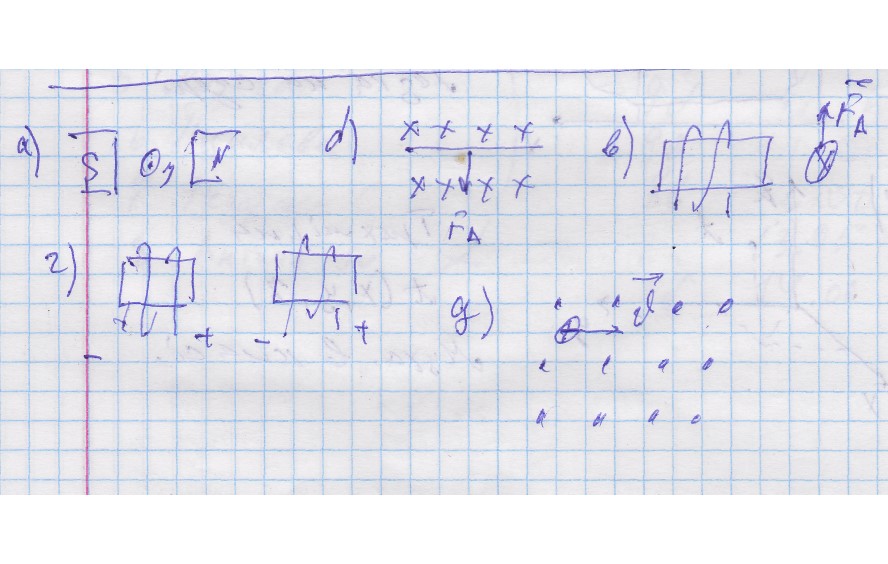 а) S ⊙ I N б) × × × ×
× × × ×
F_A
в) F_A
г) - + - +
д) v